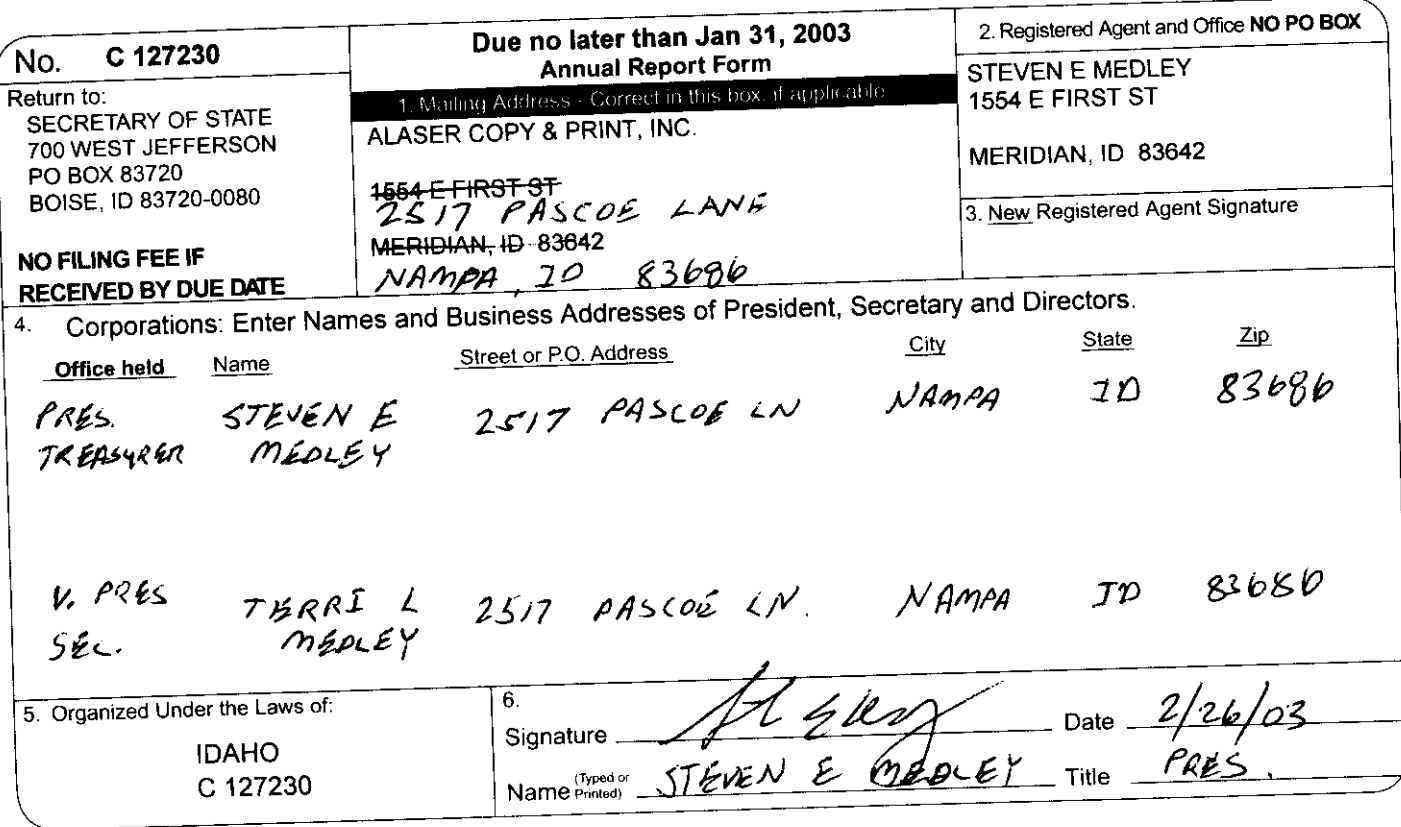 No. C 127230
Return to:
SECRETARY OF STATE
700 WEST JEFFERSON
PO BOX 83720
BOISE, ID 83720-0080
NO FILING FEE IF
RECEIVED BY DUE DATE
Due no later than Jan 31, 2003
Annual Report Form
1. Mailing Address - Correct in this box, if applicable
ALASER COPY & PRINT, INC.
1554 E FIRST ST
2517 PASCOE LANE
MERIDIAN, ID 83642
NAMPA, ID 83686
2. Registered Agent and Office NO PO BOX
STEVEN E MEDLEY
1554 E FIRST ST
MERIDIAN, ID 83642
3. New Registered Agent Signature
4. Corporations: Enter Names and Business Addresses of President, Secretary and Directors.
Office held Name Street or P.O. Address City State Zip
PRES. STEVEN E 2517 PASCOE LN NAMPA ID 83686
TREASURER MEDLEY
V. PRES TERRI L 2517 PASCOE LN. NAMPA ID 83686
SEC. MEDLEY
5. Organized Under the Laws of:
IDAHO
C 127230
6.
Signature Date 2/26/03
Name (Typed or Printed) STEVEN E MEDLEY Title PRES.